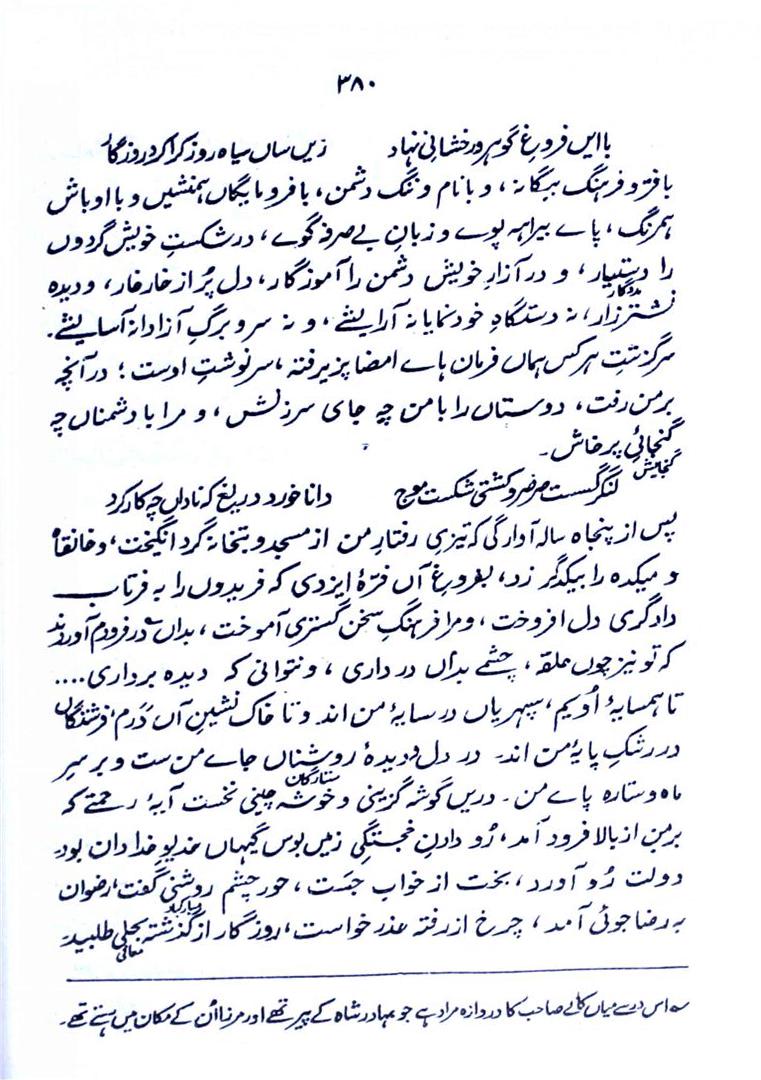 ۳۸۰
با ایں فروغِ گوہرِ رخشانی نہاد زیں ساں سیاہ روز کرا کرد روزگار
با فر و فرہنگ بیگانہ، و با نام و ننگ دشمن، با فرومایگاں ہمنشیں و با اوباش
ہمرنگ، پاے بیراہہ پوے و زبانِ بے صرفہ گوے، در شکستِ خویش گردوں
را دستیار، و در آزارِ خویش دشمن را آموزگار، دل پُر از خارخار، و دیدہ
مددگار
نشتر زار، نہ دستگاہِ خود نمایانہ آرایشے، و نہ سر و برگِ آزادانہ آسایشے۔
سرگزشتِ ہر کس ہماں فرمان ہاے امضا پزیرفتہ، سرنوشتِ اوست؛ در آنچہ
بر من رفت، دوستاں را با من چہ جاے سرزنش، و مرا با دشمناں چہ
گنجائی پرخاش۔
گنجایش
لنگر گسست صرصر و کشتی شکست موج دانا خورد دریغ کہ ناداں چہ کار کرد
پس از پنجاہ سالہ آوارگی کہ تیزیِ رفتارِ من از مسجد و بتخانہ گرد انگیخت، و خانقاہ
و میکدہ را بیکدگر زد، بفروغِ آں فرّۂ ایزدی کہ فریدوں را بہ فرتاب
دادگری دل افروخت، و مرا فرہنگِ سخن گستری آموخت، بداں در فرودم آوردند
کہ تو نیز چوں حلقہ، چشمے بداں در داری، و نتوانی کہ دیدہ برداری....
تا ہمسایۂ اُویم، سپہریاں در سایۂ من اند و تا خاک نشینِ آں دَرم، فرشتگاں
در رشکِ پایۂ من اند۔ در دل و دیدۂ روشناں جاے من ست و بر سرِ
ستارگان
ماہ و ستارہ پاے من۔ دریں گوشہ گزینی و خوشہ چینی نخست آیۂ رحمتے کہ
بر من از بالا فرود آمد، رُو دادنِ خجستگیِ زمیں بوس گیہاں خدیو خدا داں بود۔
دولت رُو آورد، بخت از خواب جست، حور چشم روشنی گفت، رضواں
مبارکباد
بہ رضا جوئی آمد، چرخ از رفتہ عذر خواست، روزگار از گذشتہ بحلی طلبید۔
معافی
؎ اس در سے میاں کالے صاحب کا دروازہ مراد ہے جو بہادر شاہ کے پیر تھے اور مرزا اُن کے مکان میں رہتے تھے۔